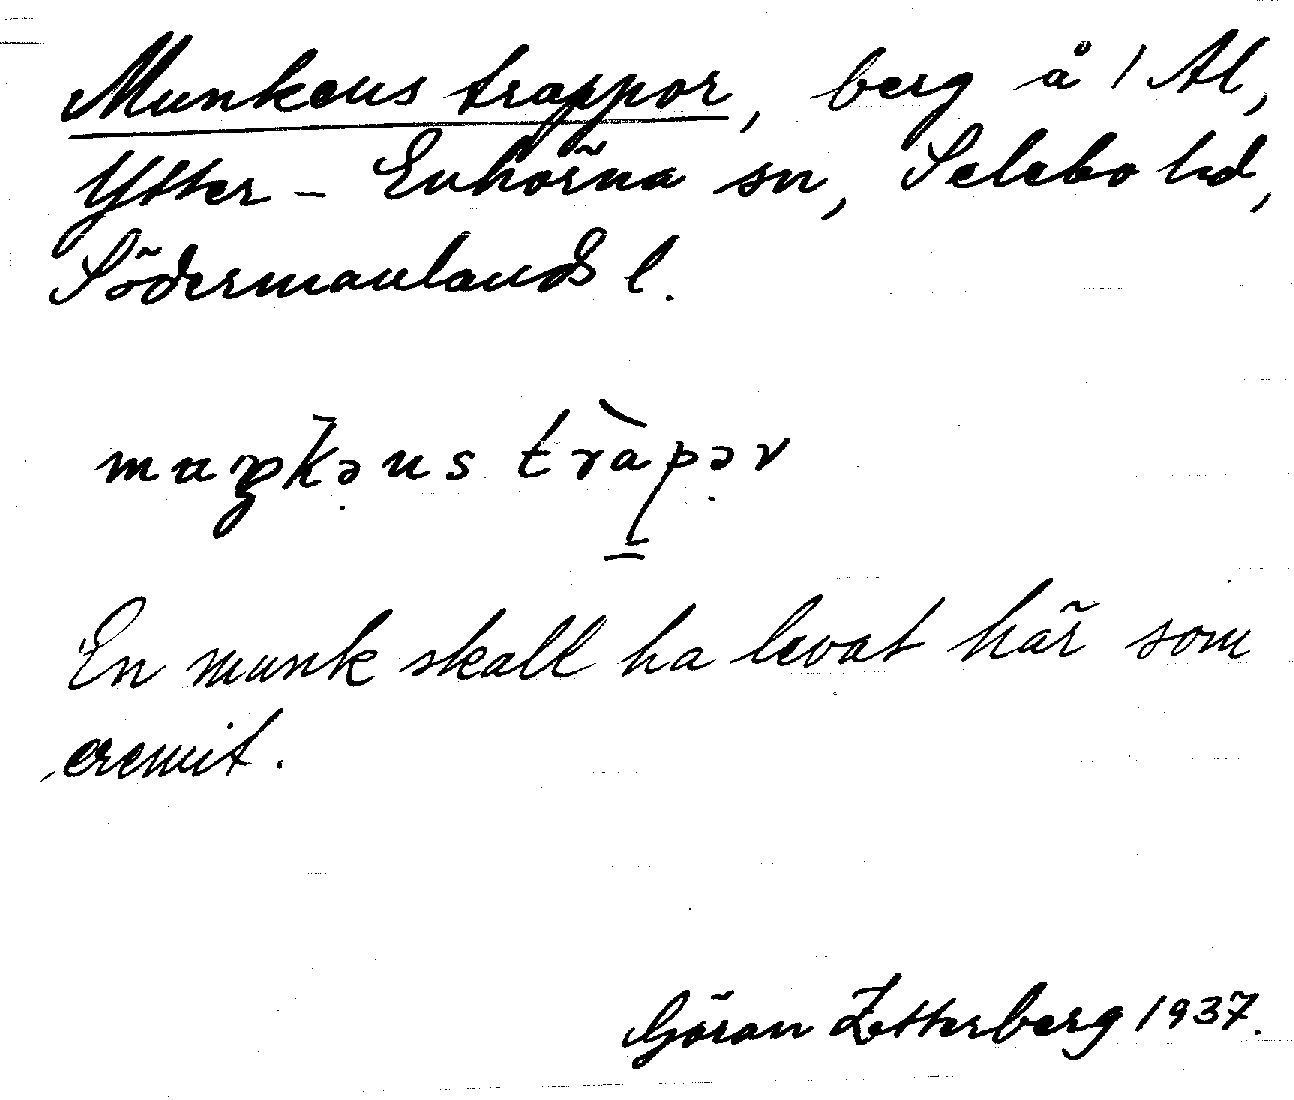 Munkens trappor, berg å 1 Al,
Ytter-Enhörna sn, Selebo hd,
Södermanlands l.
muŋkəns tràpər
En munk skall ha levat här som
eremit.
Göran Zetterberg 1937.